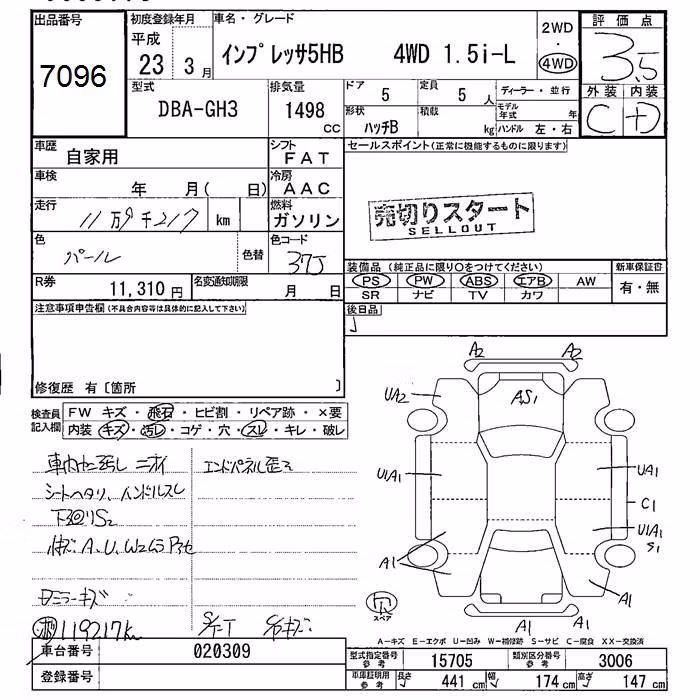 出品番号
7096
初度登録年月
平成
23 3月
車名・グレード
インプレッサ5HB 4WD 1.5i-L
2WD
4WD
評価点
3.5
外装 内装
C +D
型式
DBA-GH3
排気量
1498
CC
ドア
5
定員
5 人
ディーラー・並行
形状
ハッチB
積載
kg
モデル年式 年
ハンドル 左・右
車歴
自家用
シフト
FAT
車検
年 月( 日)
冷房
AAC
走行
11万9千217 km
燃料
ガソリン
色
パール
色替
色コード
37J
R券
11,310 円
名変通知期限
月 日
セールスポイント(正常に機能するものに限ります)
売切りスタート
SELLOUT
装備品(純正品に限り○をつけてください)
新車保証書
PS PW ABS エアB AW
SR ナビ TV カワ
有・無
後日品
注意事項申告欄(不具合内容等は具体的に記入して下さい)
修復歴 有〔箇所 〕
検査員記入欄
FW キズ・飛石・ヒビ割・リペア跡・×要
内装 キズ・汚レ・コゲ・穴・スレ・キレ・破レ
車内ヤニ汚し ニオイ エンドパネル歪ミ
シートヘタリ、ハンドルスレ
下廻りS2
A.U.W2
ミラーキズ
119217km
A2 A2
UA2
AS1
U1A1
UA1
C1
U1A1
S1
A1
A1
A1 A1
スペア
A-キズ E-エクボ U-凹み W-補修跡 S-サビ C-腐食 XX-交換済
車台番号
020309
登録番号
型式指定番号
参考
15705
類別区分番号
参考
3006
車庫証明用
参考
長さ 441 cm 幅 174 cm 高さ 147 cm